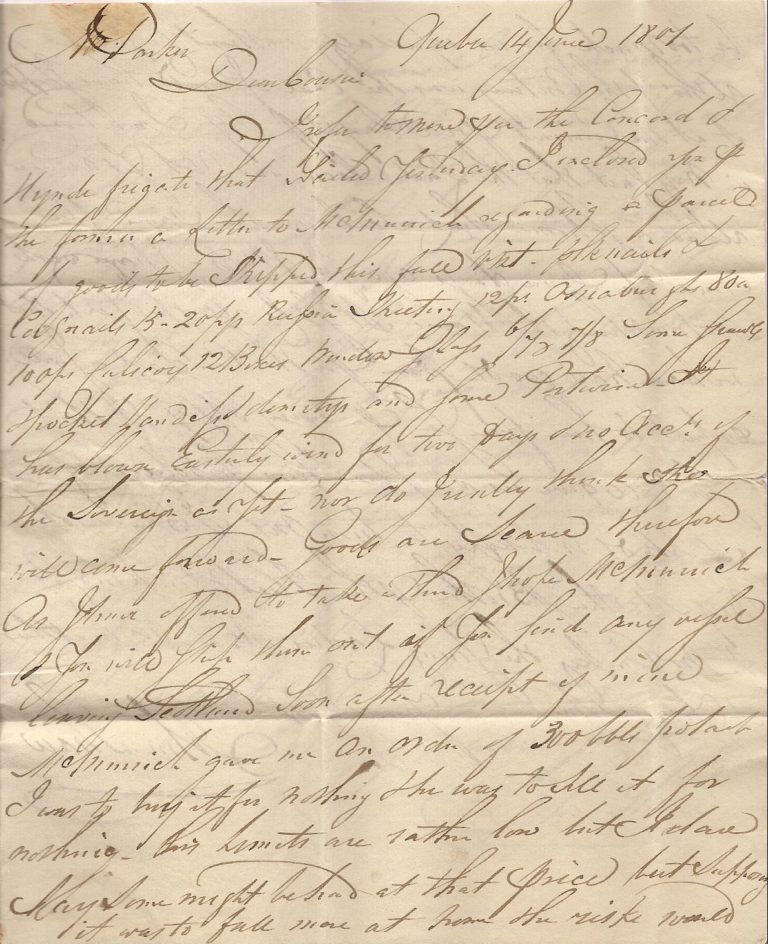 Mr Parker Quebec 14 June 1801
Dear Cousin
I refer to mine per the Concord &
Hynde frigate that Sailed Yesterday. I inclosed you p
the former a Letter to McInnnich regarding a parcel
of goods to be Shipped this fall Vizt. nails &
nails 15-20 ps Russia Sheeting 12 ps Osnaburghs 80a
100 ps Calicoes 12 Boxes Window Glass 6/7 7/8 Some Shawls
& pocket Handfs dimitys and some Portwine. It
has blown Easterly wind for two Days & no Accts of
the Sovereign as yet - nor do I really think she
will come forward - Goods are Scarce therefore
As I have offered to take a third I hope McInnnich
& You will Ship them out if You find any vessel
leaving Scotland Soon after receipt of mine
McInnnich gave me an order of 300 bbls potash
I was to buy it for nothing & he was to sell it for
nothing - his Limits are rather low but I dare
Say Some might be had at that price but Supposing
it was to fall more at home the riske would